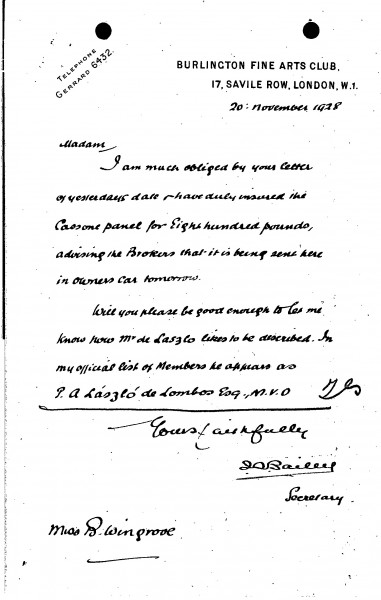 TELEPHONE
GERRARD 6432.
BURLINGTON FINE ARTS CLUB,
17, SAVILE ROW, LONDON, W.1.
20: November 1928
Madam
I am much obliged by your letter
of yesterday's date & have duly insured the
Cassone panel for Eight hundred pounds,
advising the Brokers that it is being sent here
in owners car tomorrow.
Will you please be good enough to let me
know how Mr de Laszlo likes to be described. In
my official list of Members he appears as
P. A László de Lombos Esq., M.V.O
Yours faithfully
Secretary
Miss B. Wingrove